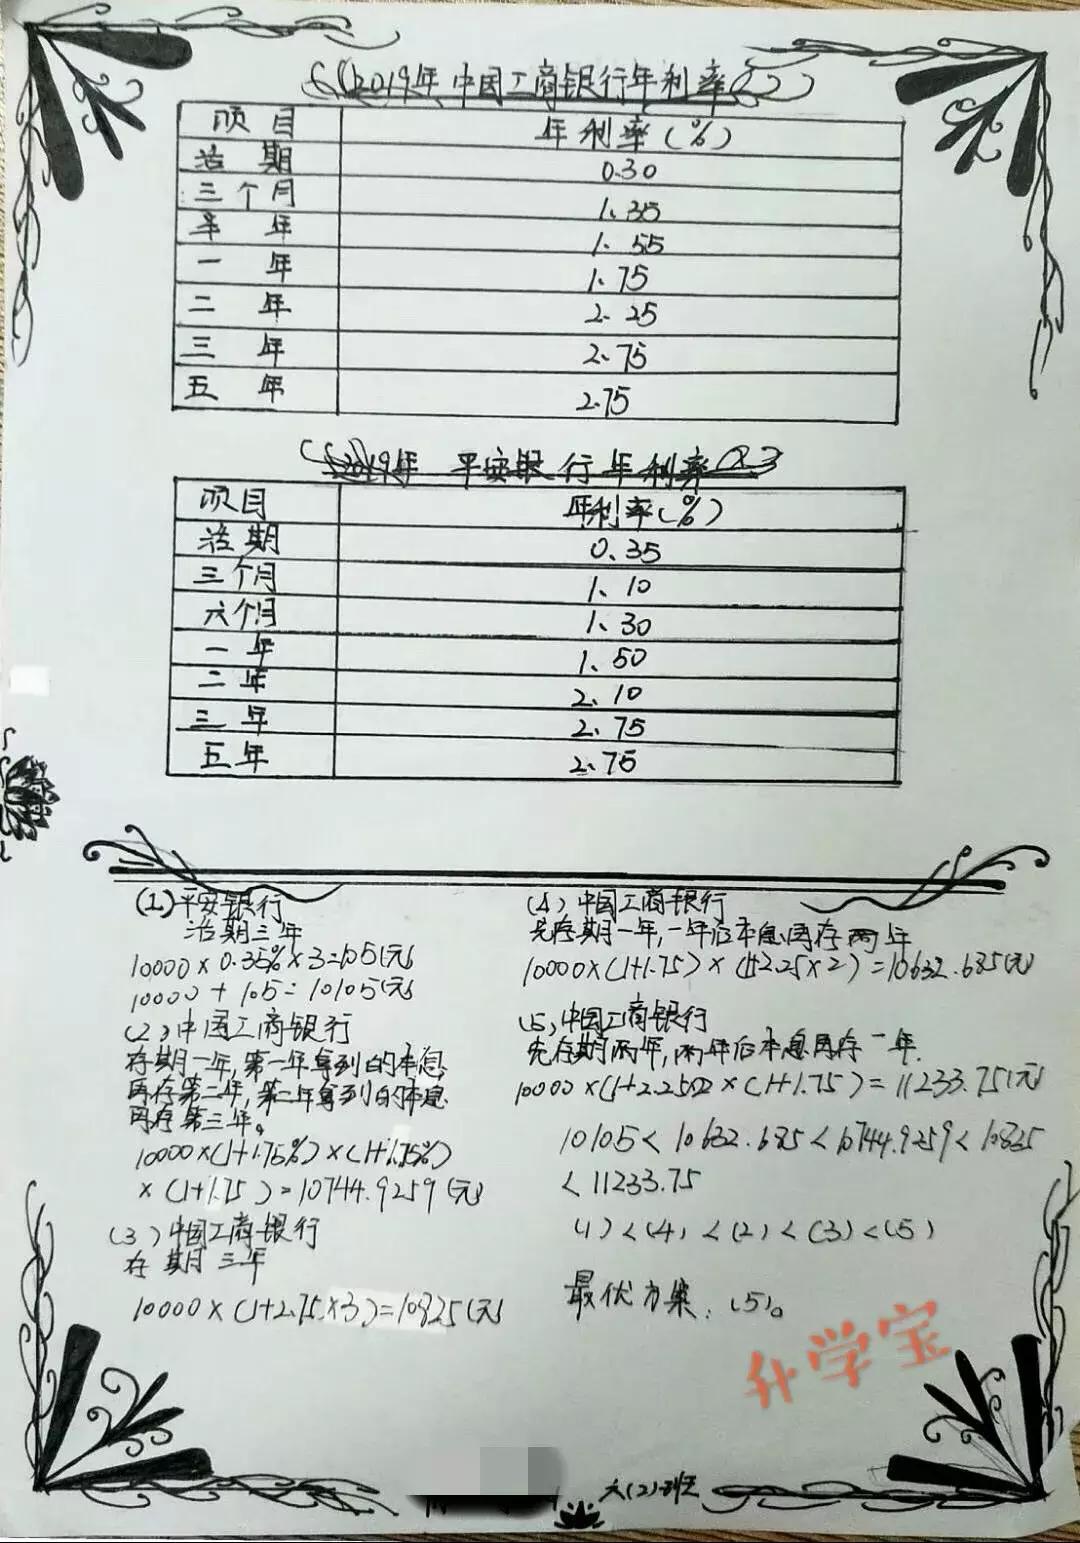 2019年中国工商银行年利率
项目 年利率(%)
活期 0.30
三个月 1.35
半年 1.55
一年 1.75
二年 2.25
三年 2.75
五年 2.75
2019年 平安银行年利率
项目 年利率(%)
活期 0.35
三个月 1.10
六个月 1.30
一年 1.50
二年 2.10
三年 2.75
五年 2.75
(1)平安银行
活期三年
10000×0.35%×3=105(元)
10000+105=10105(元)
(2)中国工商银行
存期一年,第一年拿到的本息
再存第二年,第二年拿到的本息
再存第三年。
10000×(1+1.75%)×(1+1.75%)
×(1+1.75)=10744.9259(元)
(3)中国工商银行
存期三年
10000×(1+2.75×3)=10825(元)
(4)中国工商银行
先存期一年,一年后本息再存两年
10000×(1+1.75)×(1+2.25×2)=10632.685(元)
(5)中国工商银行
先存期两年,两年后本息再存一年.
10000×(1+2.25×2×(1+1.75)=11233.75(元)
10105<10632.685<10744.9259<10825
<11233.75
(1)<(4)<(2)<(3)<(5)
最优方案:(5)。
升学宝
六(2)班